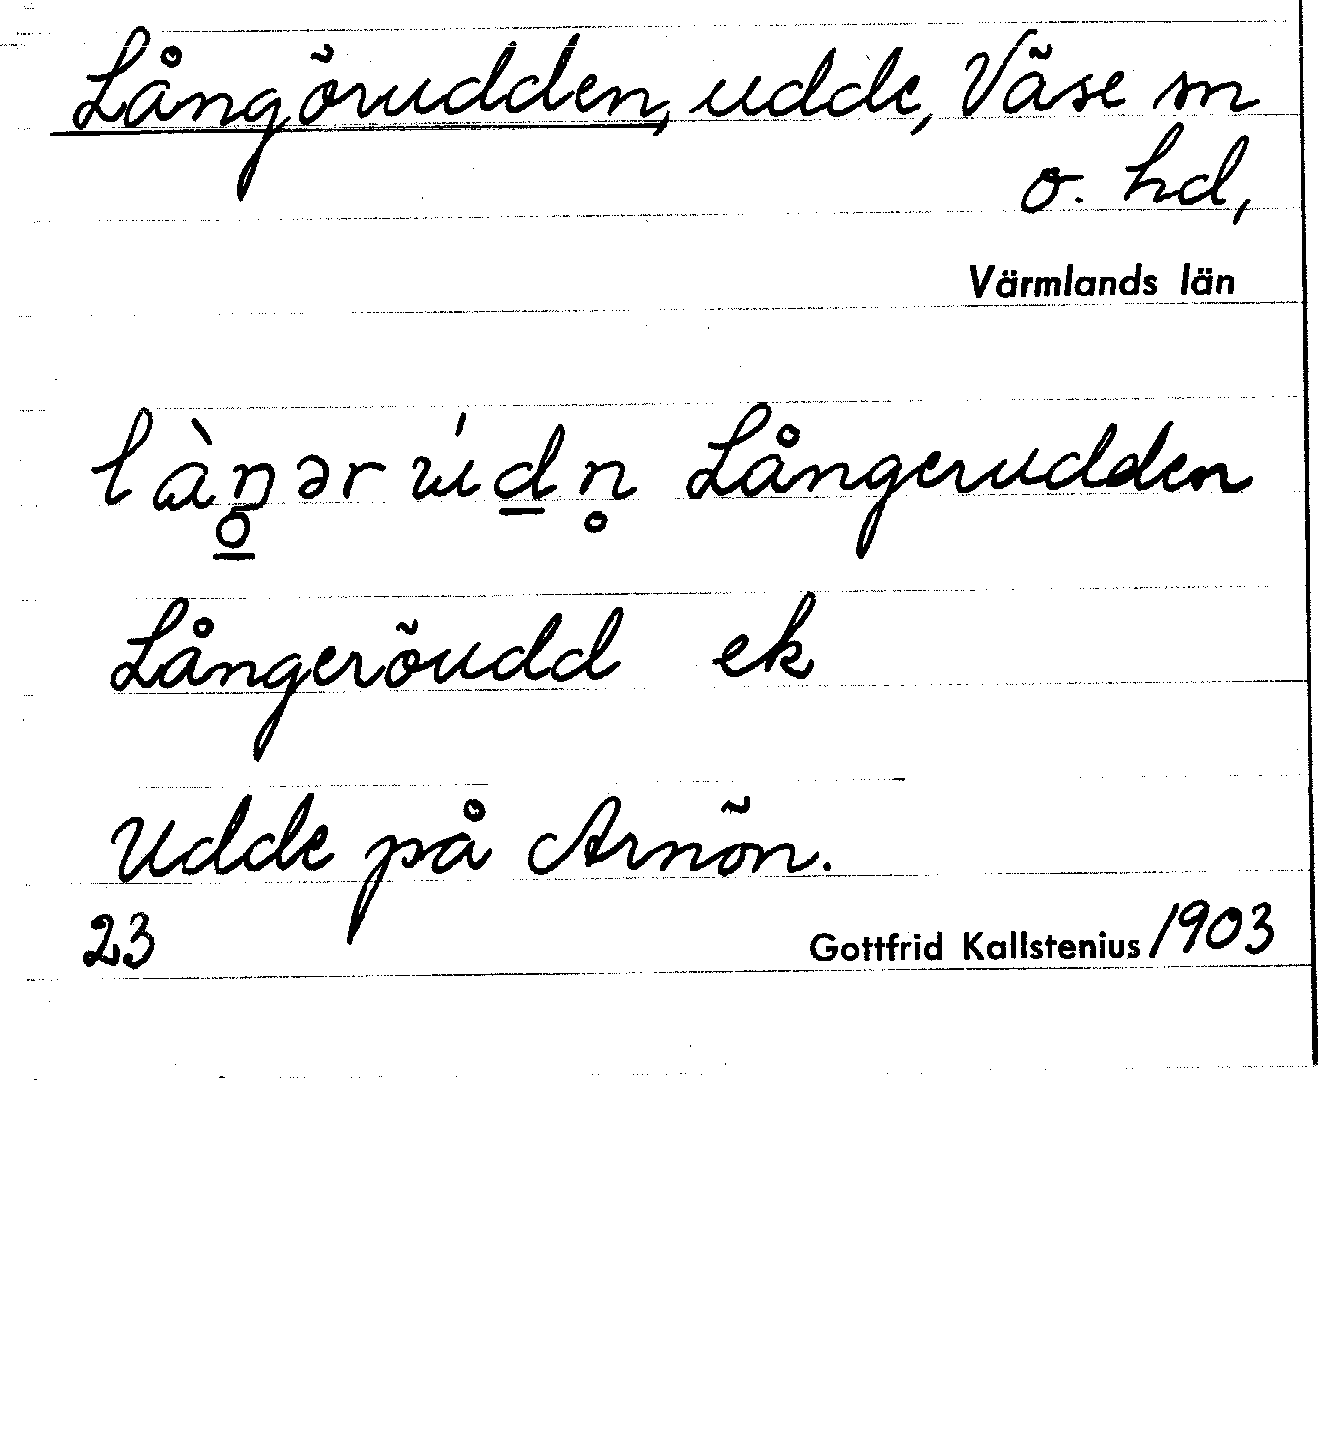 Långörudden, udde, Väse sn
o. hd,
Värmlands län
Långerudden
Långeröudd ek
Udde på Arnön.
23 Gottfrid Kallstenius /1903